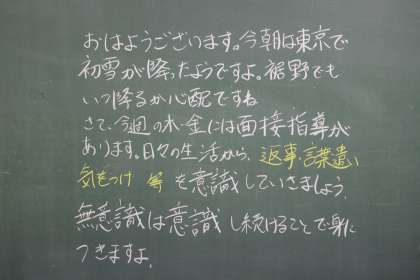 おはようございます。今朝は東京で
初雪が降ったようですよ。裾野でも
いつ降るか心配ですね
さて、今週の水・金には面接指導が
あります。日々の生活から、返事・言葉遣い
気をつけ 等 を意識していきましょう。
無意識は意識し続けることで身に
つきますよ。